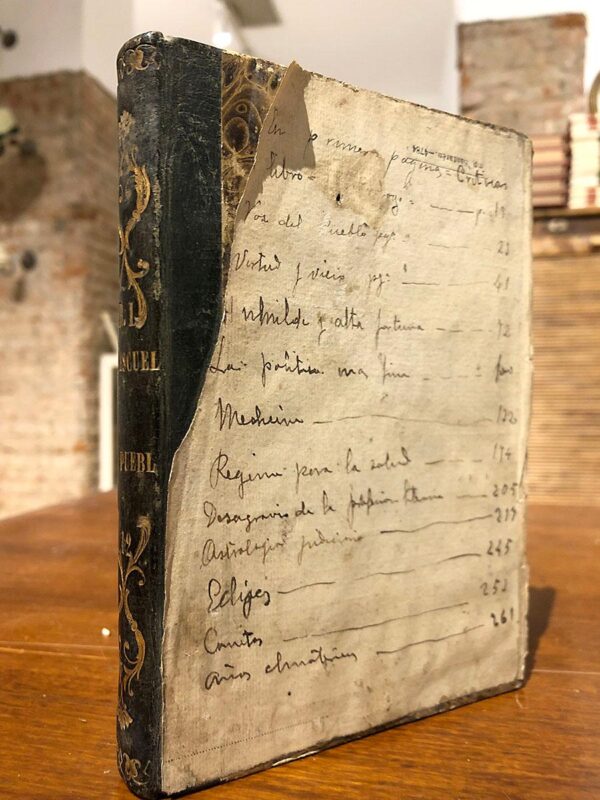 SCUEL
PUEBL
En primera página - Críticas
libro -
Voz del Pueblo pg: " 23
Virtud y vicio pg: " 41
Humilde y alta fortuna 72
La política mas fina
Medicina 122
Regimen para la salud 174
Desagravio de la profesion 205
Astrologia judiciaria 217
Eclipses 245
Cometas 252
años climatéricos 261